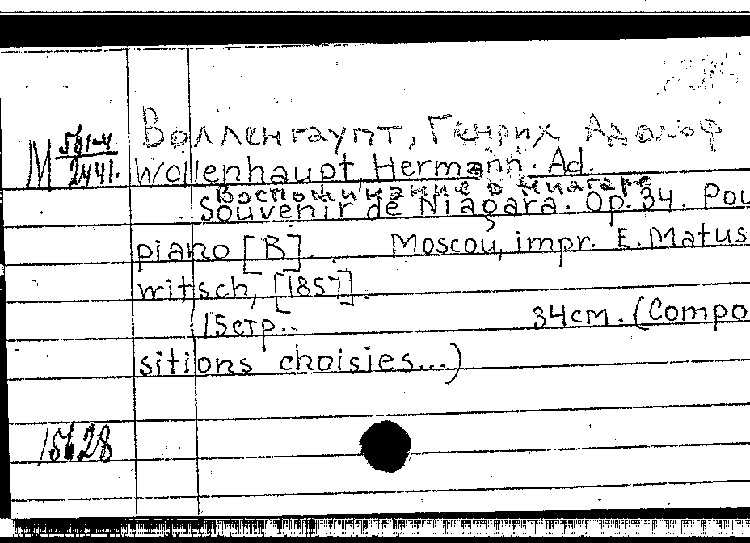 Волленгаупт, Генрих Адольф
М 561-4/2441. Wollenhaupt, Hermann. Ad.
Воспоминание о Ниагаре
Souvenir de Niagara. Op. 34. Pou
piano [B]. Moscou, impr. E. Matus
witsch, [1857].
15 стр.. 34 см. (Compo
sitions choisies...)
15628